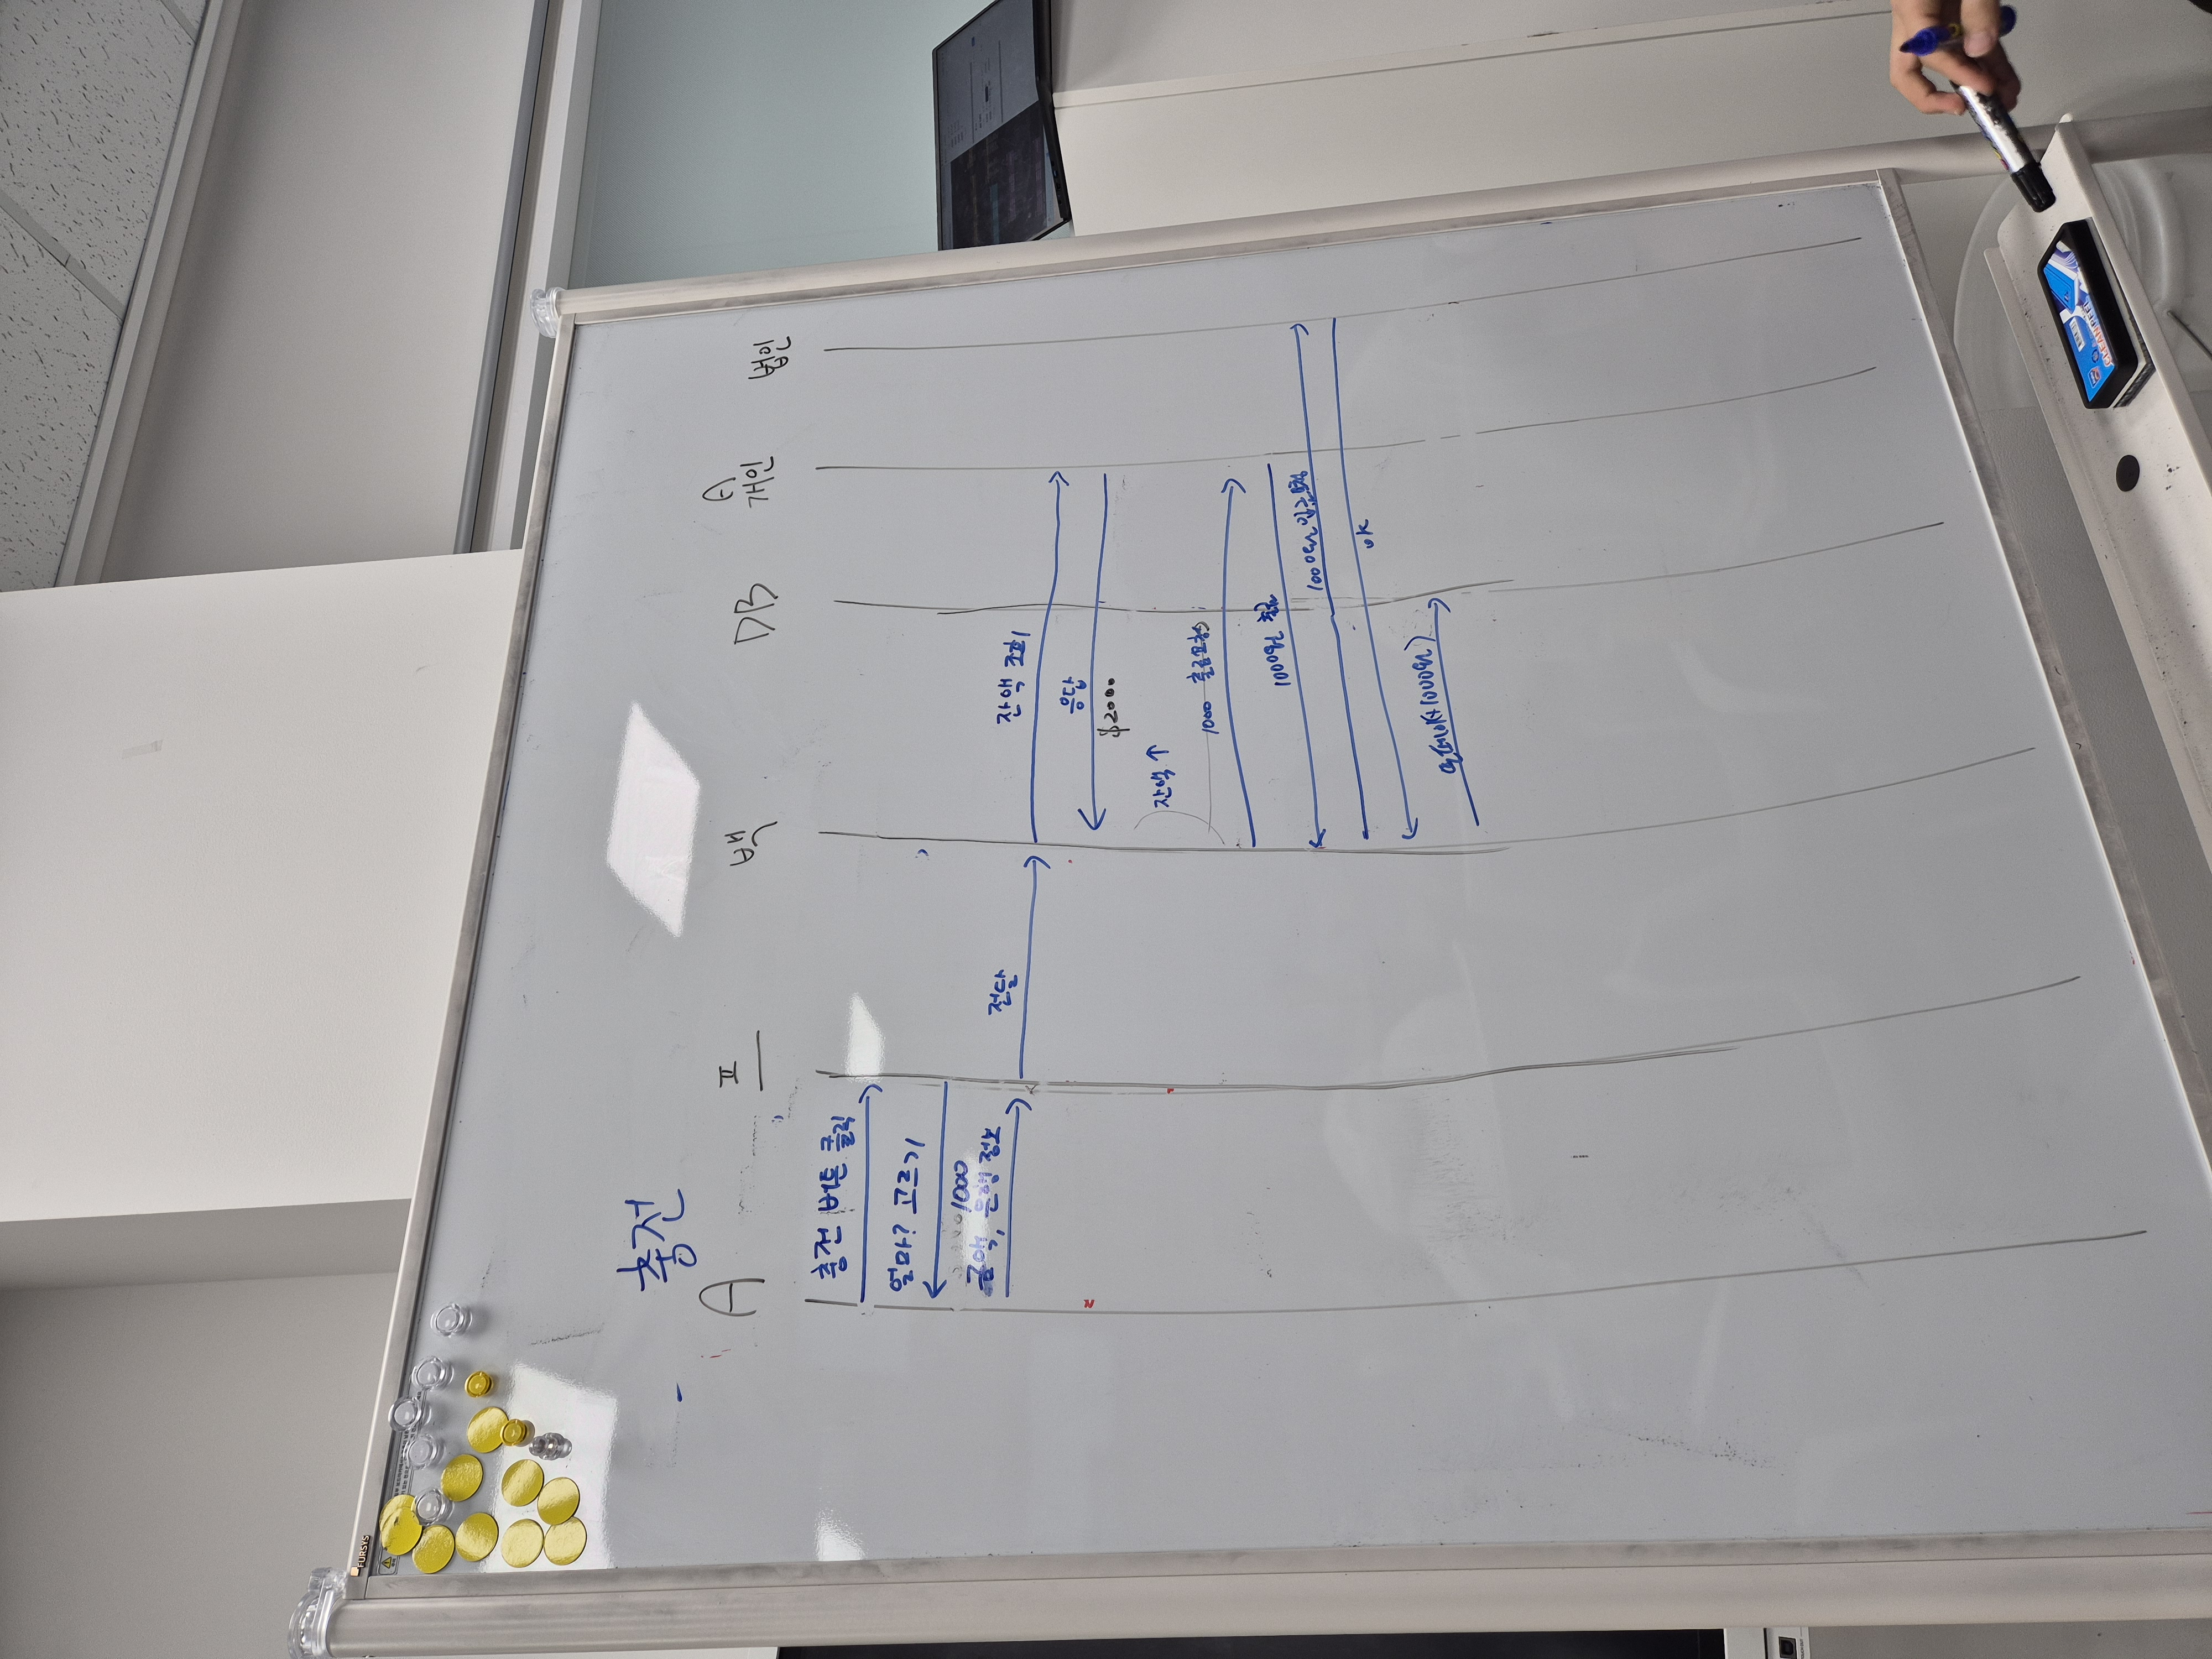 FURSYS
충전
A
프
백
DB
A
개인
법인
충전 버튼 클릭
얼마? 고르기
1000
금액, 은행 정보
전달
잔액 조회
응답
$2000
잔액 ↑
1000 출금요청
1000원 출금
1000원 입금요청
ok
페이(+1000원)
CLEAN